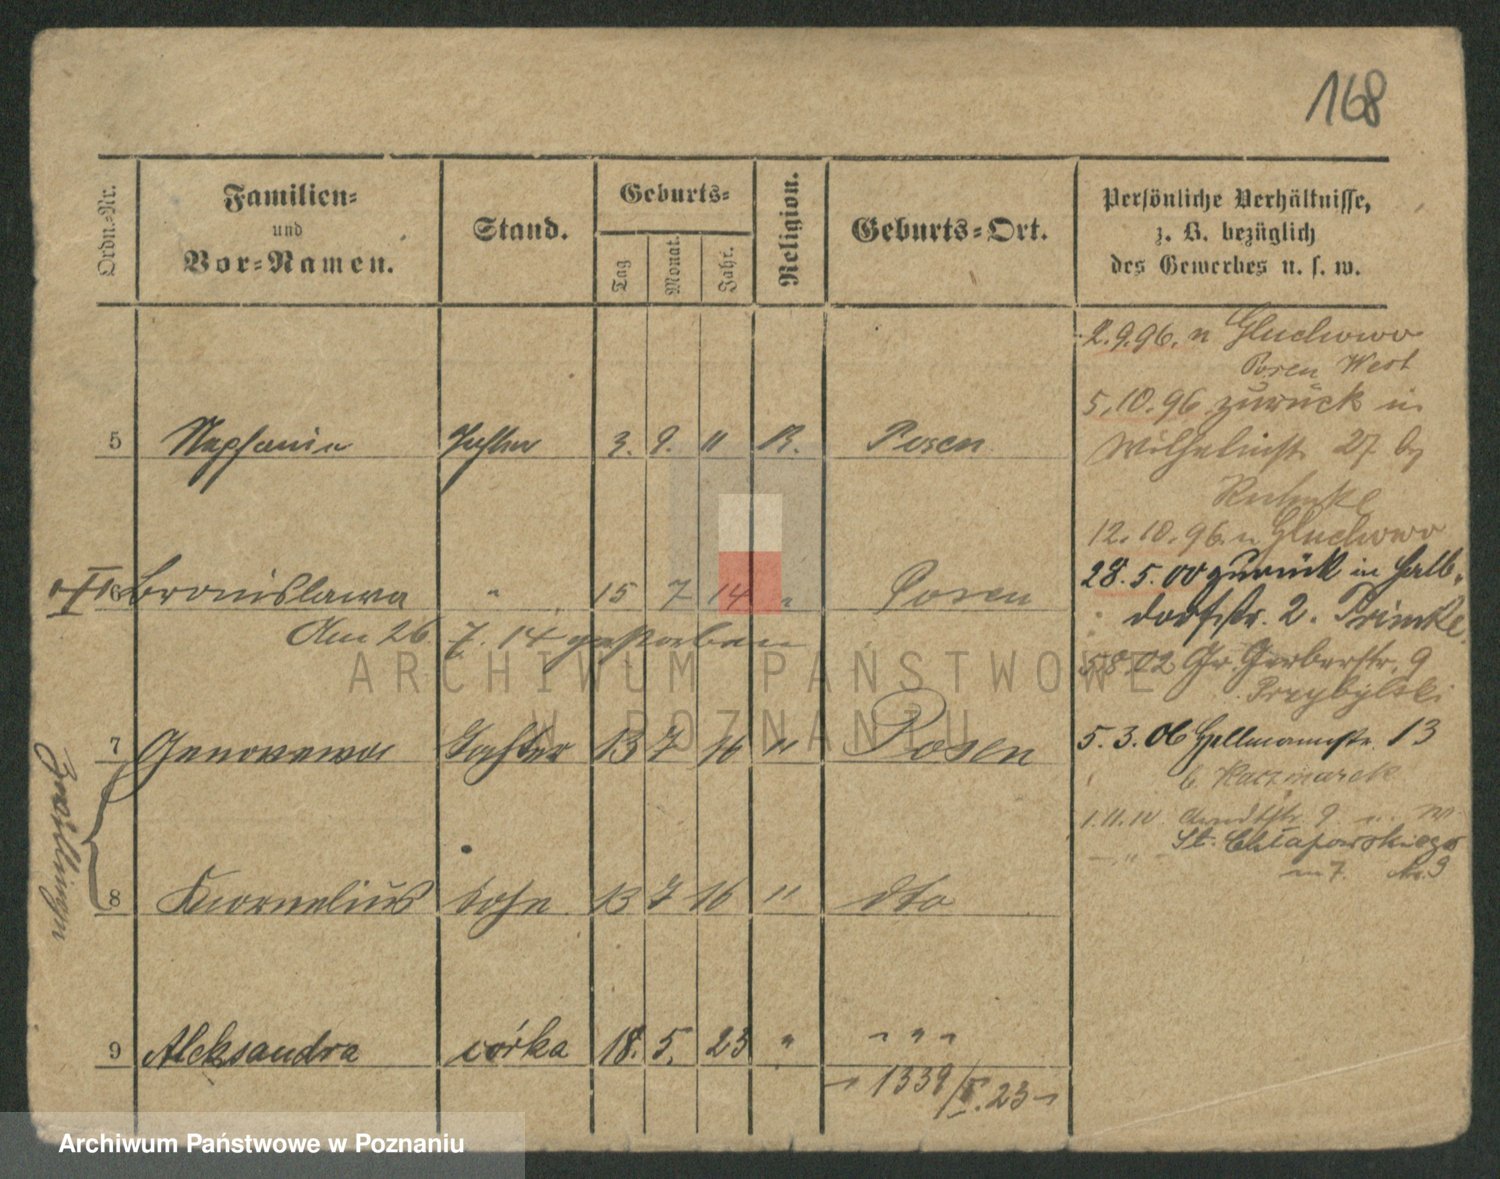 168
Ordn.=Nr.
Familien=
und
Vor=Namen.
Stand.
Geburts=
Tag
Monat.
Jahr.
Religion.
Geburts=Ort.
Persönliche Verhältnisse,
z. B. bezüglich
des Gewerbes u. s. w.
2.9.96. n Gluchowo
Posen West
5.10.96 zurück in
Wilhelmstr. 27 by
12.10.96 n Gluchowo
28.5.00 zurück in Halb-
dorfstr. 2.
5.8.02 Gr. Gerberstr. 9
Przybylski
5.3.06 Hellmannstr. 13
b. Kaczmarek
1.11.10
St. Chłapowskiego
m 7. No. 9
5 Stephania Tochter 3. 9. 11 R. Posen
6 Bronislawa " 15 7 14 " Posen
Am 26. 7. 14 gestorben
7 Genowewa Tochter 13 7 16 " Posen
8 Kornelius Sohn 13 7 16 " dto
Zwillinge
9 Aleksandra córka 18. 5. 23 " " " "
1339/V.23
ARCHIWUM PAŃSTWOWE
W POZNANIU
Archiwum Państwowe w Poznaniu